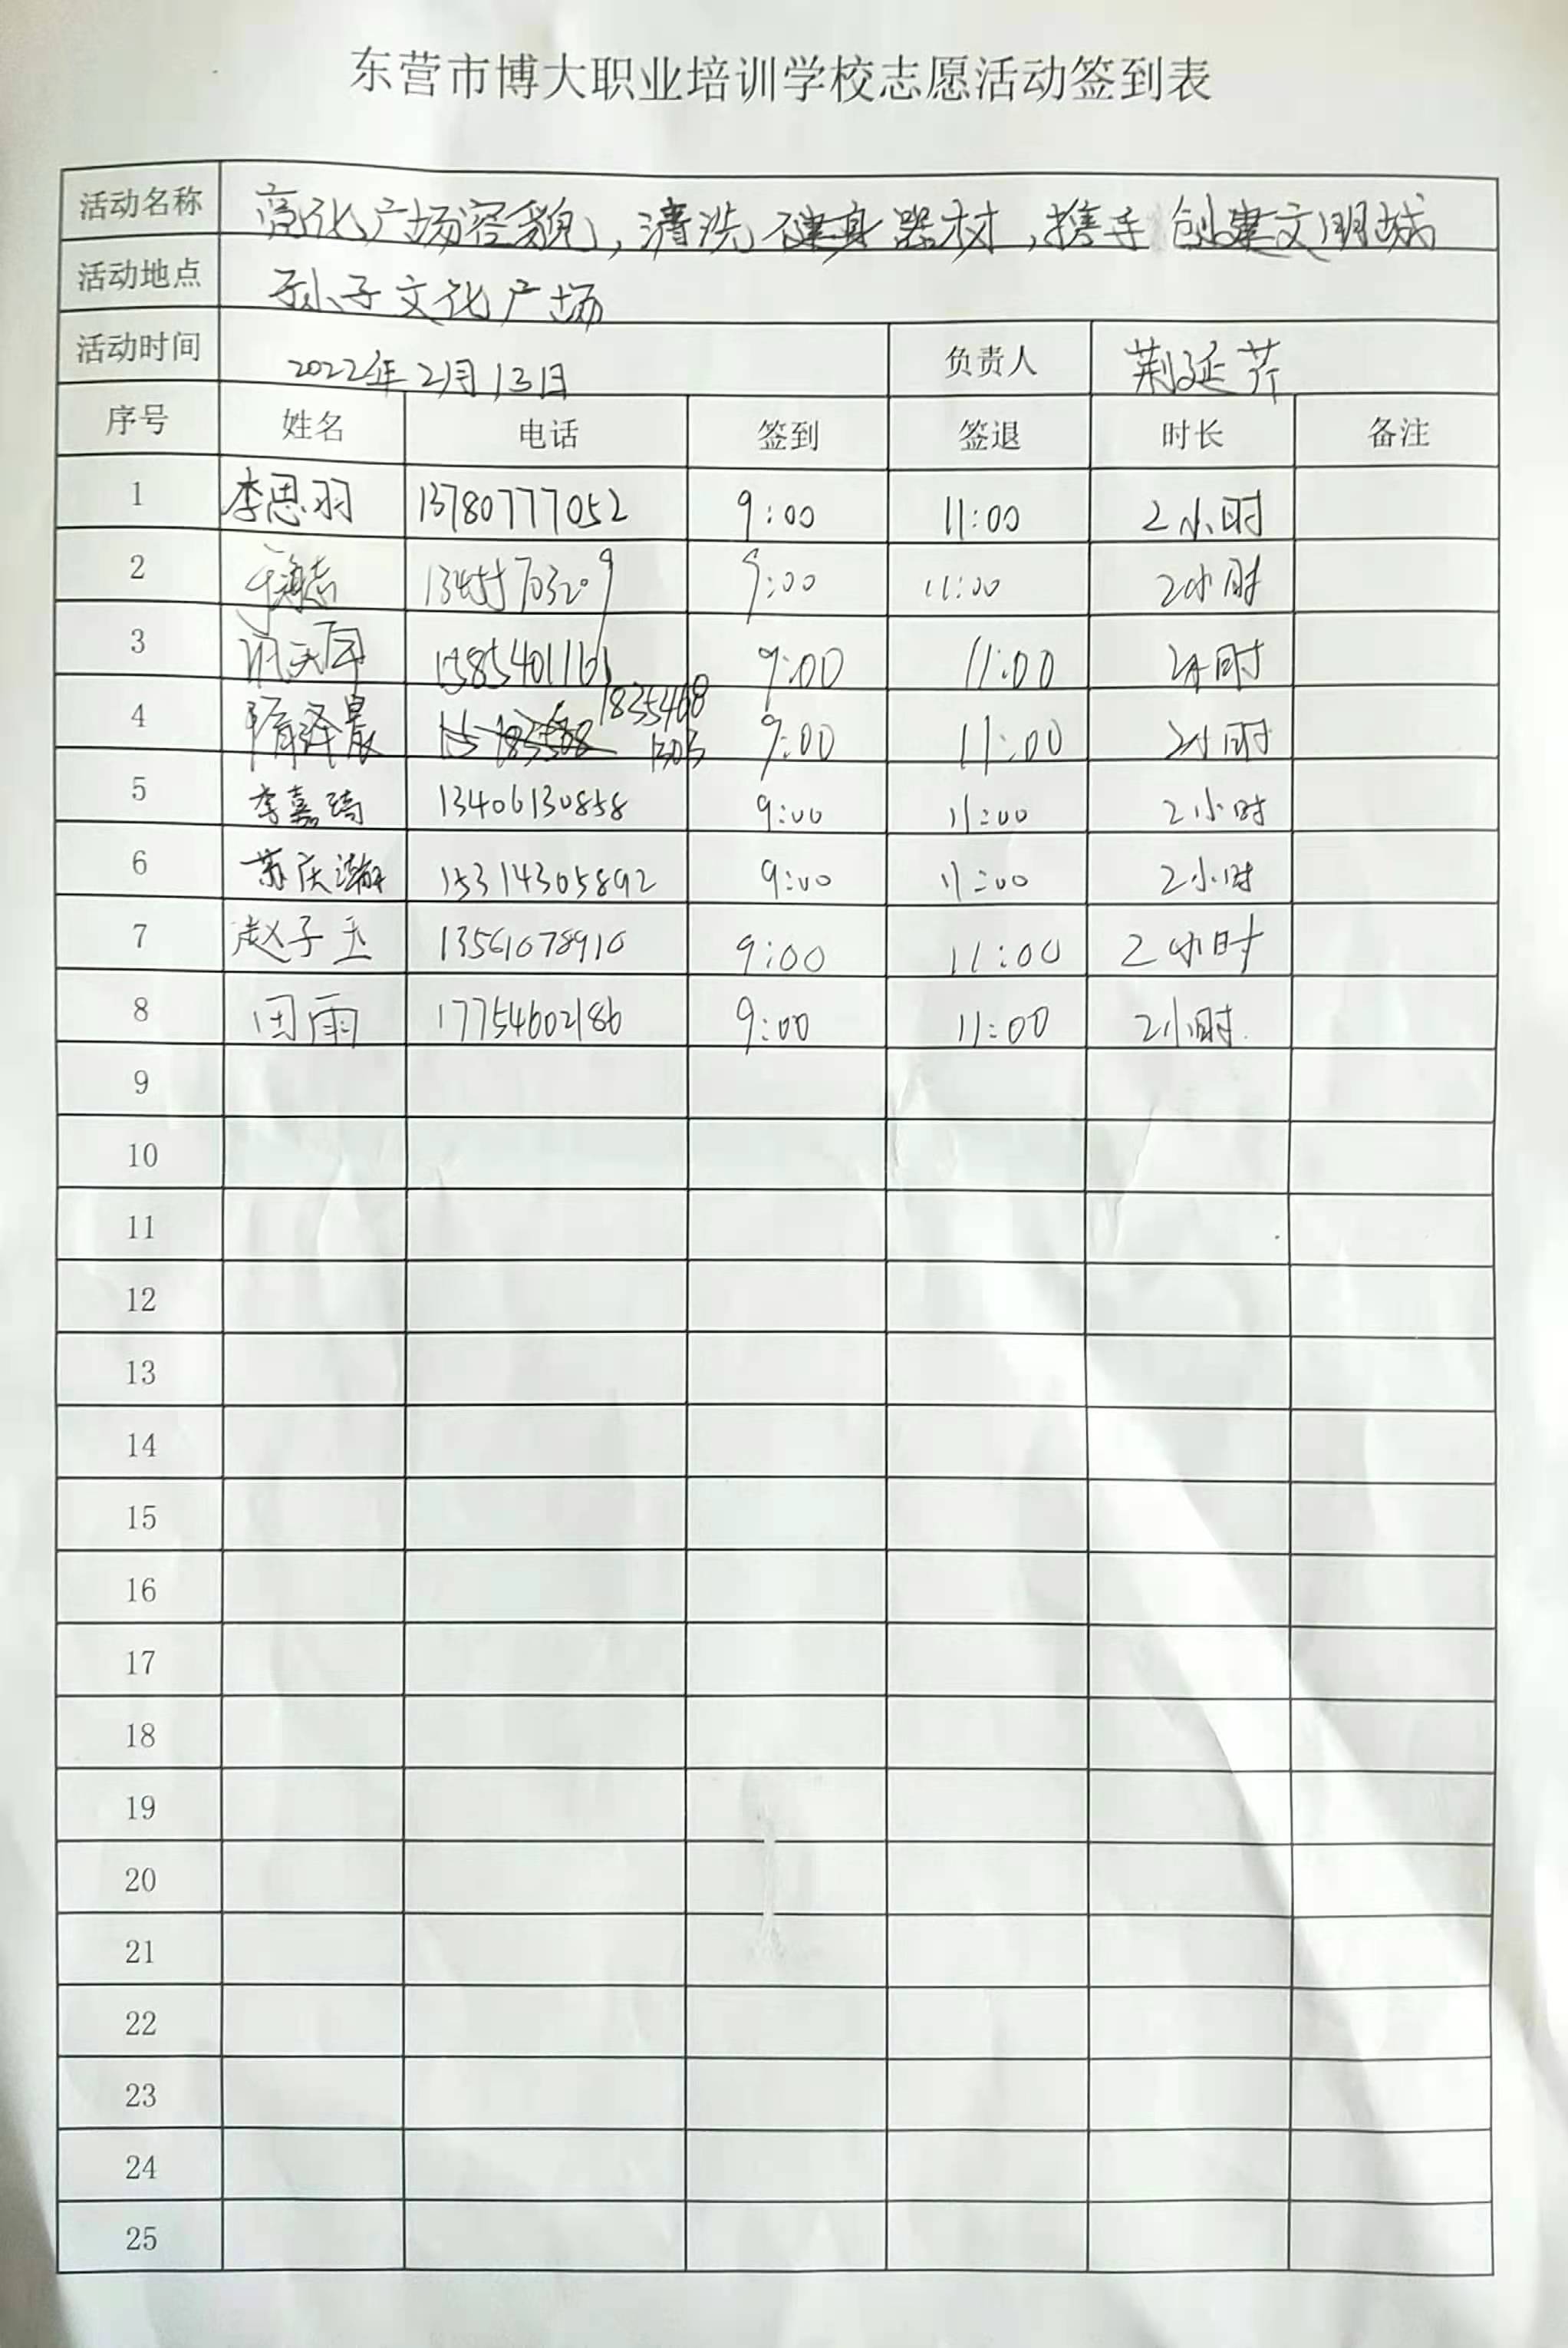 东营市博大职业培训学校志愿活动签到表
活动名称 亮化广场容貌,清洗健身器材,携手创建文明城
活动地点 孙子文化广场
活动时间 2022年2月13日 负责人 荆延芹
序号 姓名 电话 签到 签退 时长 备注
1 李思羽 13780777052 9:00 11:00 2小时
2 13455703209 9:00 11:00 2小时
3 9:00 11:00 2小时
4 隋泽晨 18354681303 9:00 11:00 2小时
5 李嘉琦 13406130858 9:00 11:00 2小时
6 苏庆瀚 15314305892 9:00 11:00 2小时
7 赵子玉 13561078910 9:00 11:00 2小时
8 田雨 17754602186 9:00 11:00 2小时.
9
10
11
12
13
14
15
16
17
18
19
20
21
22
23
24
25